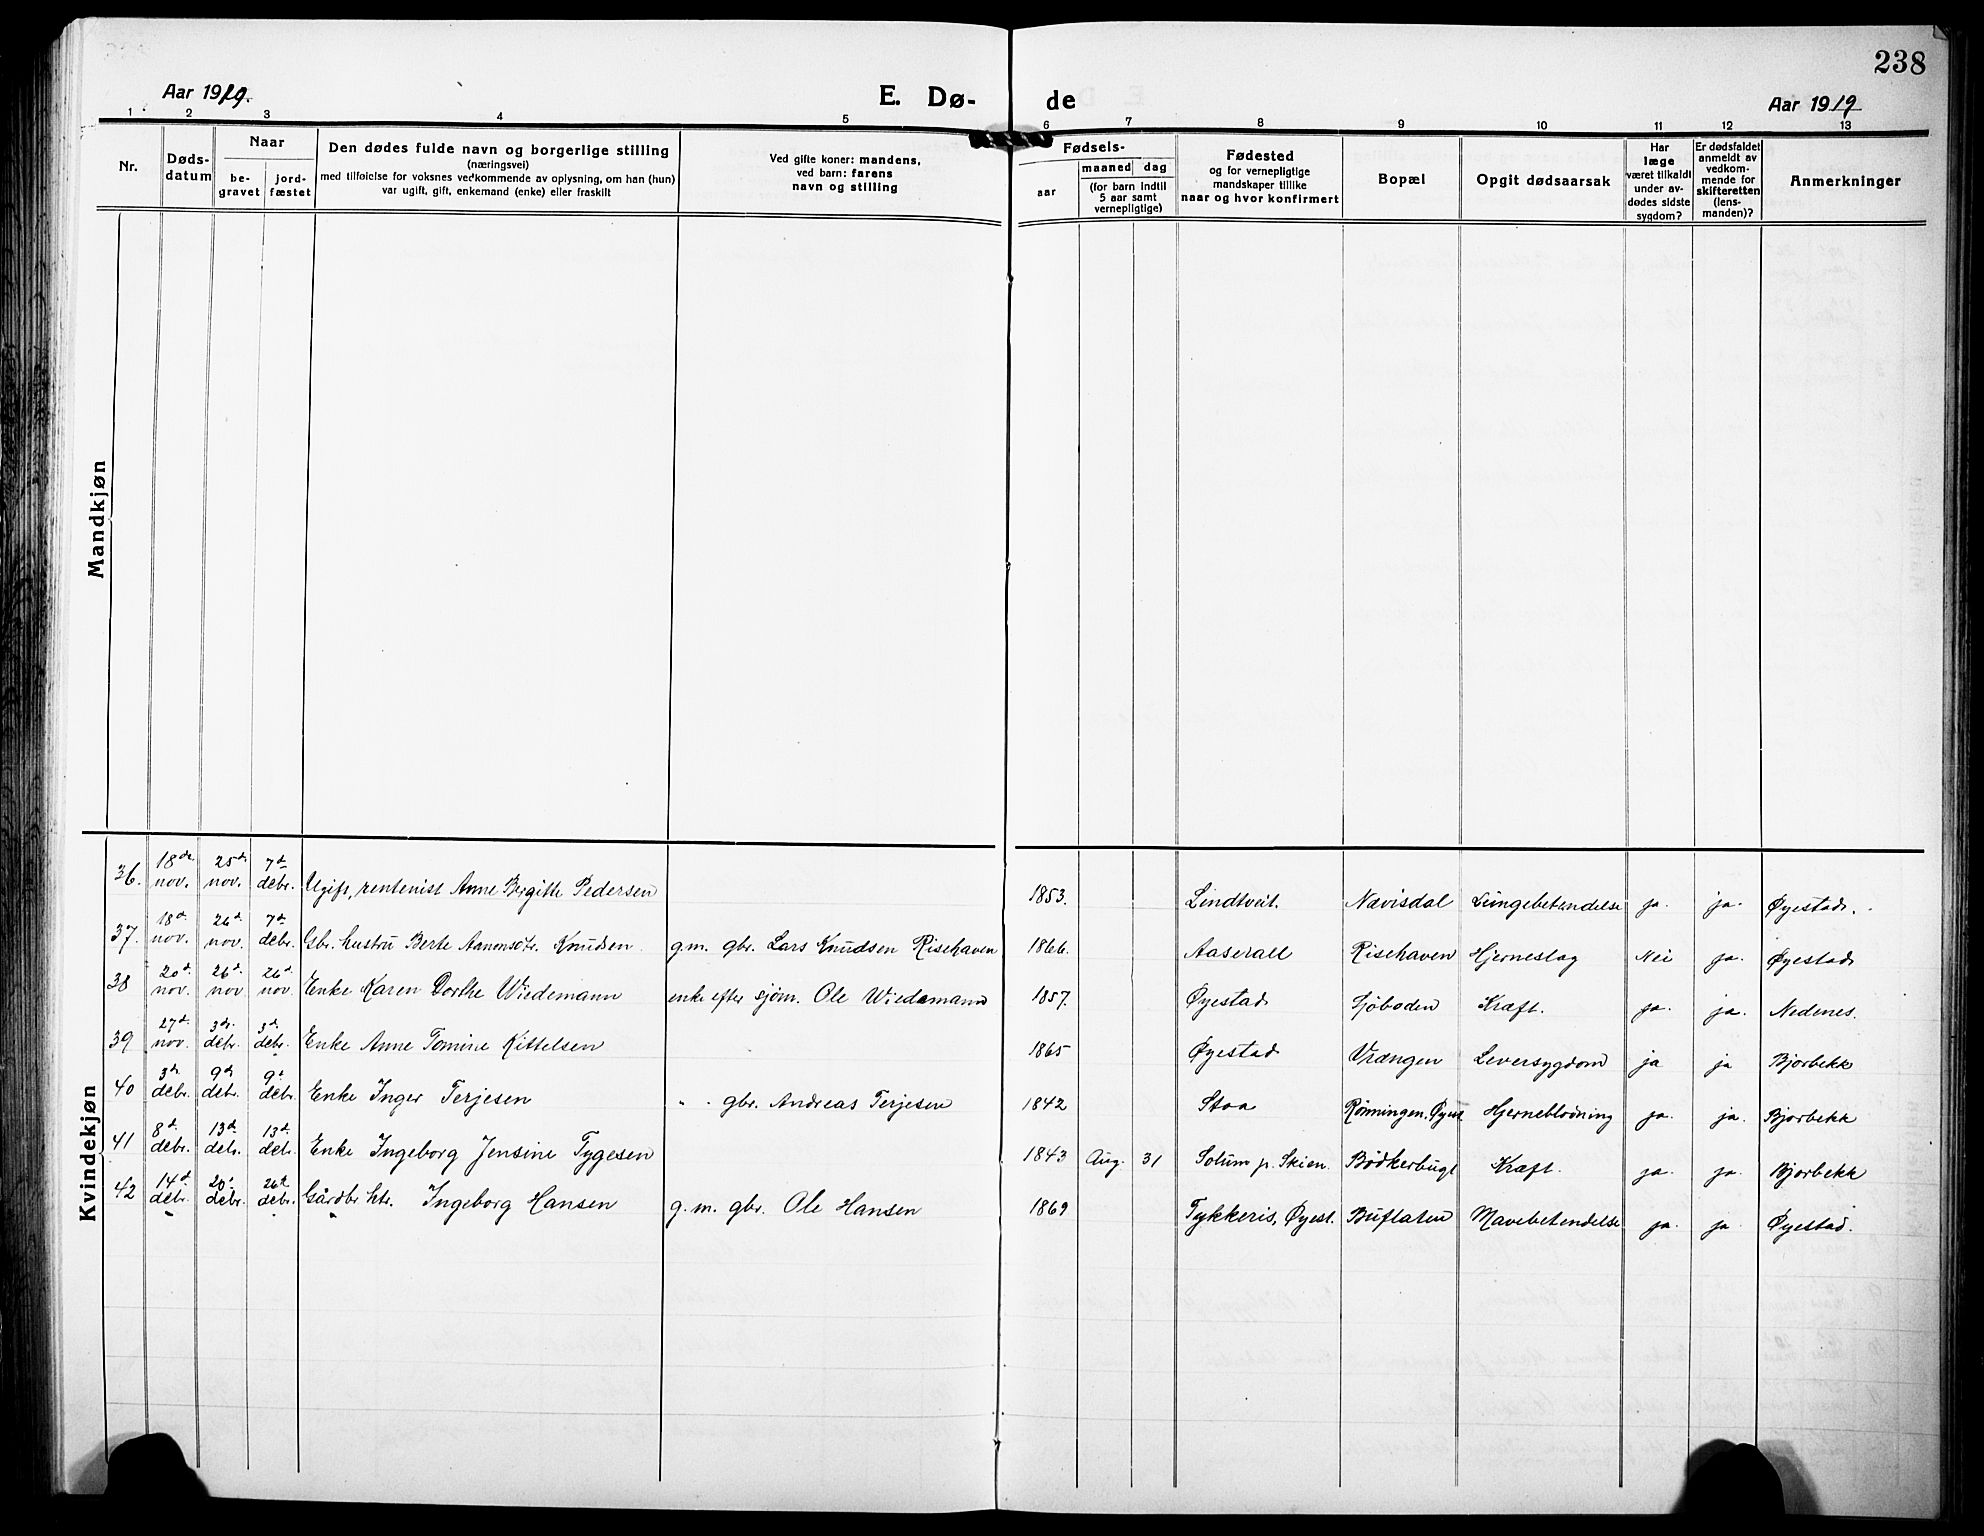 238
Aar 1919.
E. Dø-
de
Aar 1919
1 2 3 4 5 6 7 8 9 10 11 12 13
Nr.
Døds-
datum
Naar
be-
gravet
jord-
fæstet
Den dødes fulde navn og borgerlige stilling
(næringsvei)
med tilføielse for voksnes vedkommende av oplysning, om han (hun)
var ugift, gift, enkemand (enke) eller fraskilt
Ved gifte koner: mandens,
ved barn: farens
navn og stilling
Fødsels-
aar
maaned dag
(for barn indtil
5 aar samt
vernepligtige)
Fødested
og for vernepligtige
mandskaper tillike
naar og hvor konfirmert
Bopæl
Opgit dødsaarsak
Har
læge
været tilkaldt
under av-
dødes sidste
sygdom?
Er dødsfaldet
anmeldt av
vedkom-
mende for
skifteretten
(lens-
manden)?
Anmerkninger
Mandkjøn
Kvindekjøn
36. 18de nov. 25de nov. 7d debr. Ugift, rentenist Anne Bergitte Pedersen 1853. Lindtveit. Nævisdal Lungebetendelse ja. ja. Øyestad.
37. 18d. nov. 26d. nov. 7d. debr. Gbr. hustru Berte Aanonsdtr. Knudsen. g.m. gbr. Lars Knudsen Risehaven 1866. Aaserall Risehaven Hjerneslag Nei ja. Øyestad
38 20d. nov. 26d. nov 26d. nov. Enke Karen Dorthe Wiedemann enke efter sjøm. Ole Wiedemann 1857. Øyestad Sjøboden Kræft. ja. ja. Nedenes.
39 27d. nov. 3d. debr. 3d. debr. Enke Anne Tomine Kittelsen 1865 Øyestad Vrængen Leversygdom ja ja Bjorbekk
40 3d. debr. 9d debr. 9d debr. Enke Inger Terjesen " " gbr. Andreas Terjesen 1842 Stoa Rønningen. Øyest. Hjerneblødning ja. ja. Bjorbekk
41 8d. debr. 13d. debr. 13d. debr. Enke Ingeborg Jensine Tygesen 1843 Aug. 31 Solum p. Skien. Bødkerbugt Kræft. ja. ja. Bjorbekk
42 14d debr. 20d debr. 26d debr. Gårdbr. htr. Ingeborg Hansen g.m. gbr. Ole Hansen 1869 Tykkeris, Øyest. Buflaten Mavebetendelse ja. ja. Øyestad.